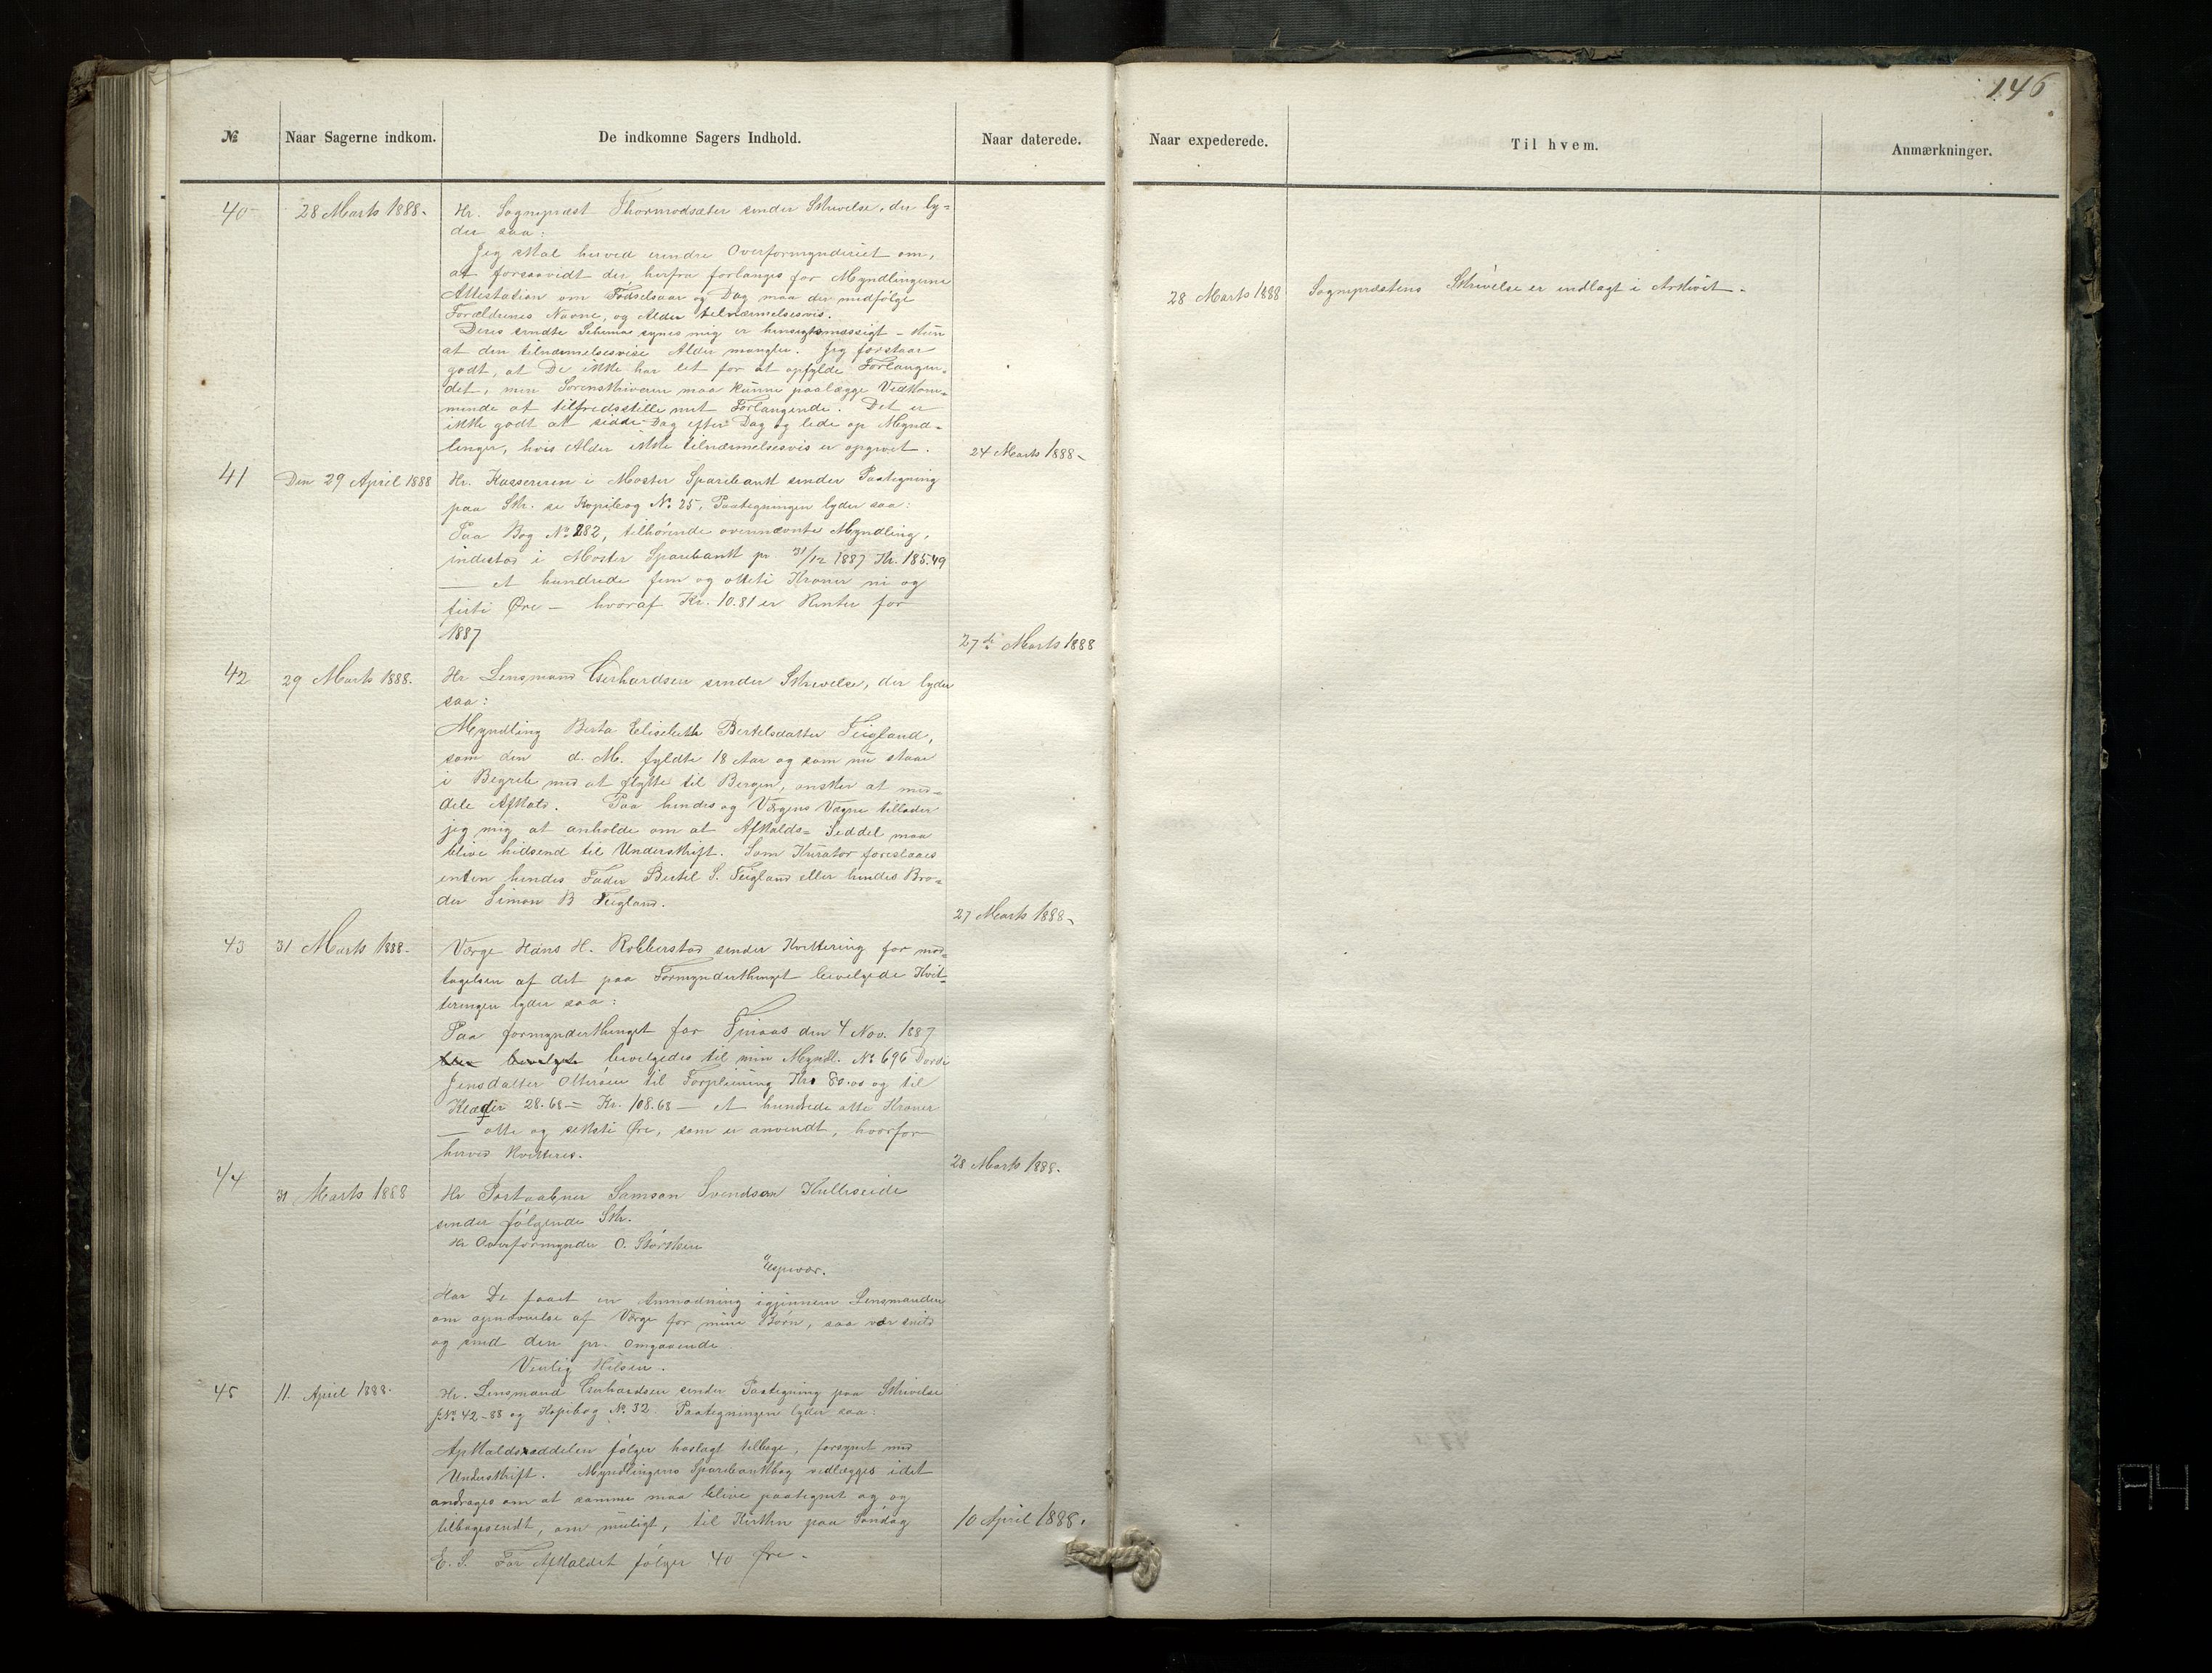 146
№ Naar Sagerne indkom. De indkomne Sagers Indhold. Naar daterede. Naar expederede. Til hvem. Anmærkninger.
40 28 Marts 1888. Hr. Sognepræst Thormodsæter sender Skrivelse, der ly=
der saa:
Jeg skal herved erindre Overformynderiet om,
at forsaavidt der herfra forlanges for Myndlingerne
Attestation om Fødselsaar og Dag maa der medfølge
Forældrenes Navne, og Alder tilnærmelsesvis.
28 Marts 1888 Sognepræstens Skrivelse er indlagt i Arkivet.
Deres sendte Schema synes mig er hensigtsmæssigt – kun
at den tilnærmelsesvise Alder mangler. Jeg forstaar
godt, at De ikke har let for at opfylde Forlangen=
det, men Sorenskriveren maa kunne paalægge Vedkom=
mende at tilfredsstille mit Forlangende. Det er
ikke godt at sidde Dag efter Dag og lede op Mynd=
linger, hvis Alder ikke tilnærmelsesvis er opgivet. 24 Marts 1888
41 Den 29 April 1888 Hr. Kassereren i Moster Sparebank sender Paategning
paa Skr. se Kopibog No 25, Paategningen lyder saa:
Paa Bog No 282, tilhørende ovennævnte Myndling,
indestod i Moster Sparebank pr. 31/12 1887 Kr. 185.49
— et hundrede fem og otteti Kroner ni og
firti Øre — hvoraf Kr. 10.81 er Renter for
1887 27de Marts 1888
42 29 Marts 1888. Hr Lensmand Gerhardsen sender Skrivelse, der lyder
saa:
Myndling Berta Elisebeth Bertelsdatter Teigland,
som den d. M. fyldte 18 Aar og som nu staar
i Begreb med at flytte til Bergen, ønsker at med=
dele Afkald. Paa hendes og Værgens Vegne tillader
jeg mig at anholde om at Afkalds= Seddel maa
blive hidsend til Underskrift. Som Kurator foreslaaes
enten hendes Fader Bertel S. Teigland eller hendes Bro=
der Simon B Teigland. 27 Marts 1888
43 31 Marts 1888. Værge Hans H. Robberstad sender Kvittering for mod=
tagelsen af det paa Formynderthinget bevilgede Kvit=
teringen lyder saa:
Paa formynderthinget for Finaas den 4 Nov. 1887
blev bevilgede bevilgedes til min Myndl. No 696 Dordi
Jensdatter Otterøen til Forpleining Kr. 80.00 og til
Klæder 28.68 = Kr. 108.68 — et hundrede otte Kroner
— otte og seksti Øre, som er anvendt, hvorfor
herved kvitteres. 28 Marts 1888.
44 31 Marts 1888 Hr Postaabner Samson Svendsen Kulleseide
sender følgende Skr.
Hr Overformynder O. Størksen
Espevær.
Har De faaet en Anmodning igjennem Lensmanden
om opnævnelse af Værge for mine Børn, saa vær snild
og send den pr. Omgaaende
Venlig Hilsen.
45 11. April 1888. Hr. Lensmand Gerhardsen sender Paategning paa Skrivelse
J.No. 42-88 og Kopibog No. 32. Paategningen lyder saa:
Afkaldsseddelen følger hoslagt tilbage, forsynet med
Underskrift. Myndlingens Sparebankbog vedlægges idet
andrages om at samme maa blive paategnet og og
tilbagesendt, om muligt, til Kirken paa Søndag 10 April 1888.
E. S. For Afkaldet følger 40 Øre.
A4